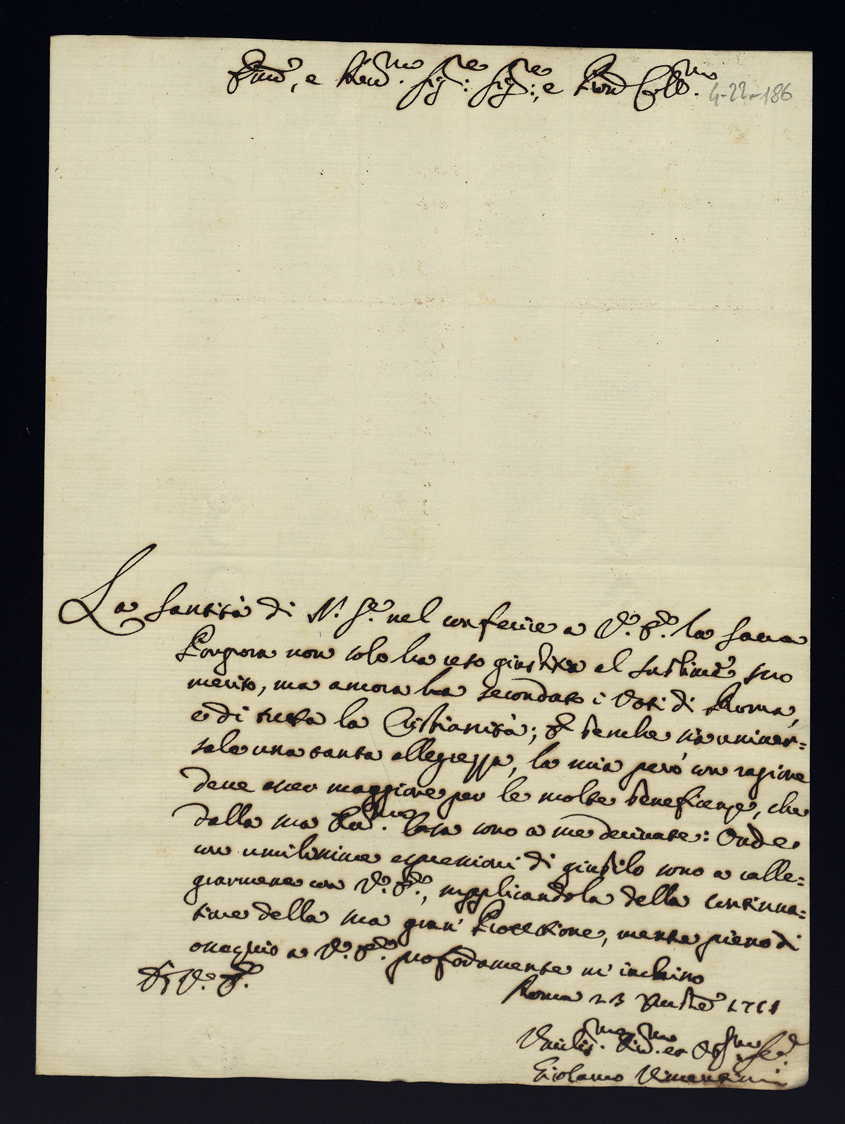 Em͞o, e Reu.mo Sig.re Sig.re, e Pron̄ Coll.mo
4-22-186
La Santità di N. Sre. nel conferire a V.ra E.za la Sacra
Porpora non solo ha reso giustizia al sublime suo
merito, ma ancora ha secondato i Voti di Roma,
e di tutta la Cristianità; E benche sia univer=
sale una tanta allegrezza, la mia però con ragione
deve esser maggiore per le molte beneficenze, che
dalla sua Casa sono a me derivate: Onde
con umilissime espressioni di giubilo sono a ralle=
grarmene con V.ra E.za, supplicandola della continua=
tione della sua gran' Protettione, mentre pieno di
ossequio a V.ra E.za profodamente m' inchino
Di V.ra E.za
Roma 23
Umilis.mo Diu.mo et Obl.mo Ser.
Girolamo